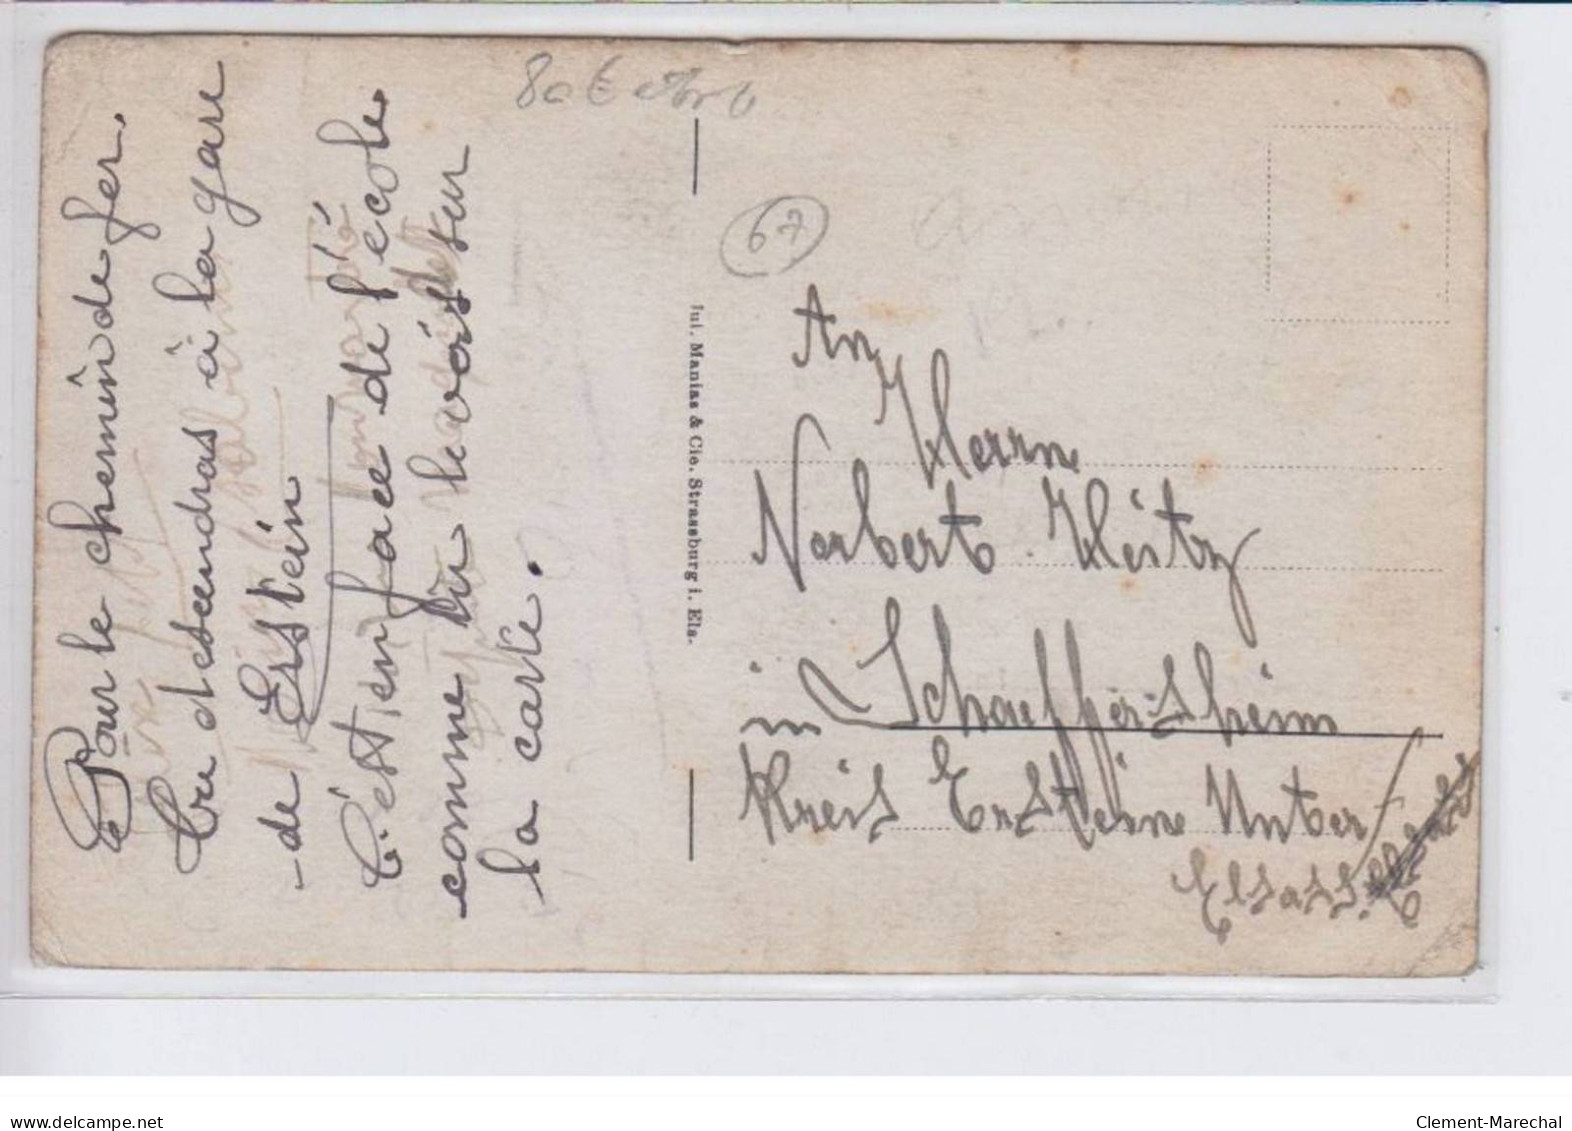 Pour le chemin de fer.
tu descendras à la gare
de Erstein
C'est en face de l'école
comme tu le vois sur
la carte.
80€
67
Jul. Manias & Cie. Strassburg i. Els.
An
Herrn
Norbert Heitz
in Schaeffersheim
Kreis Erstein Unter
Elsass.
www.delcampe.net
Clement-Marechal